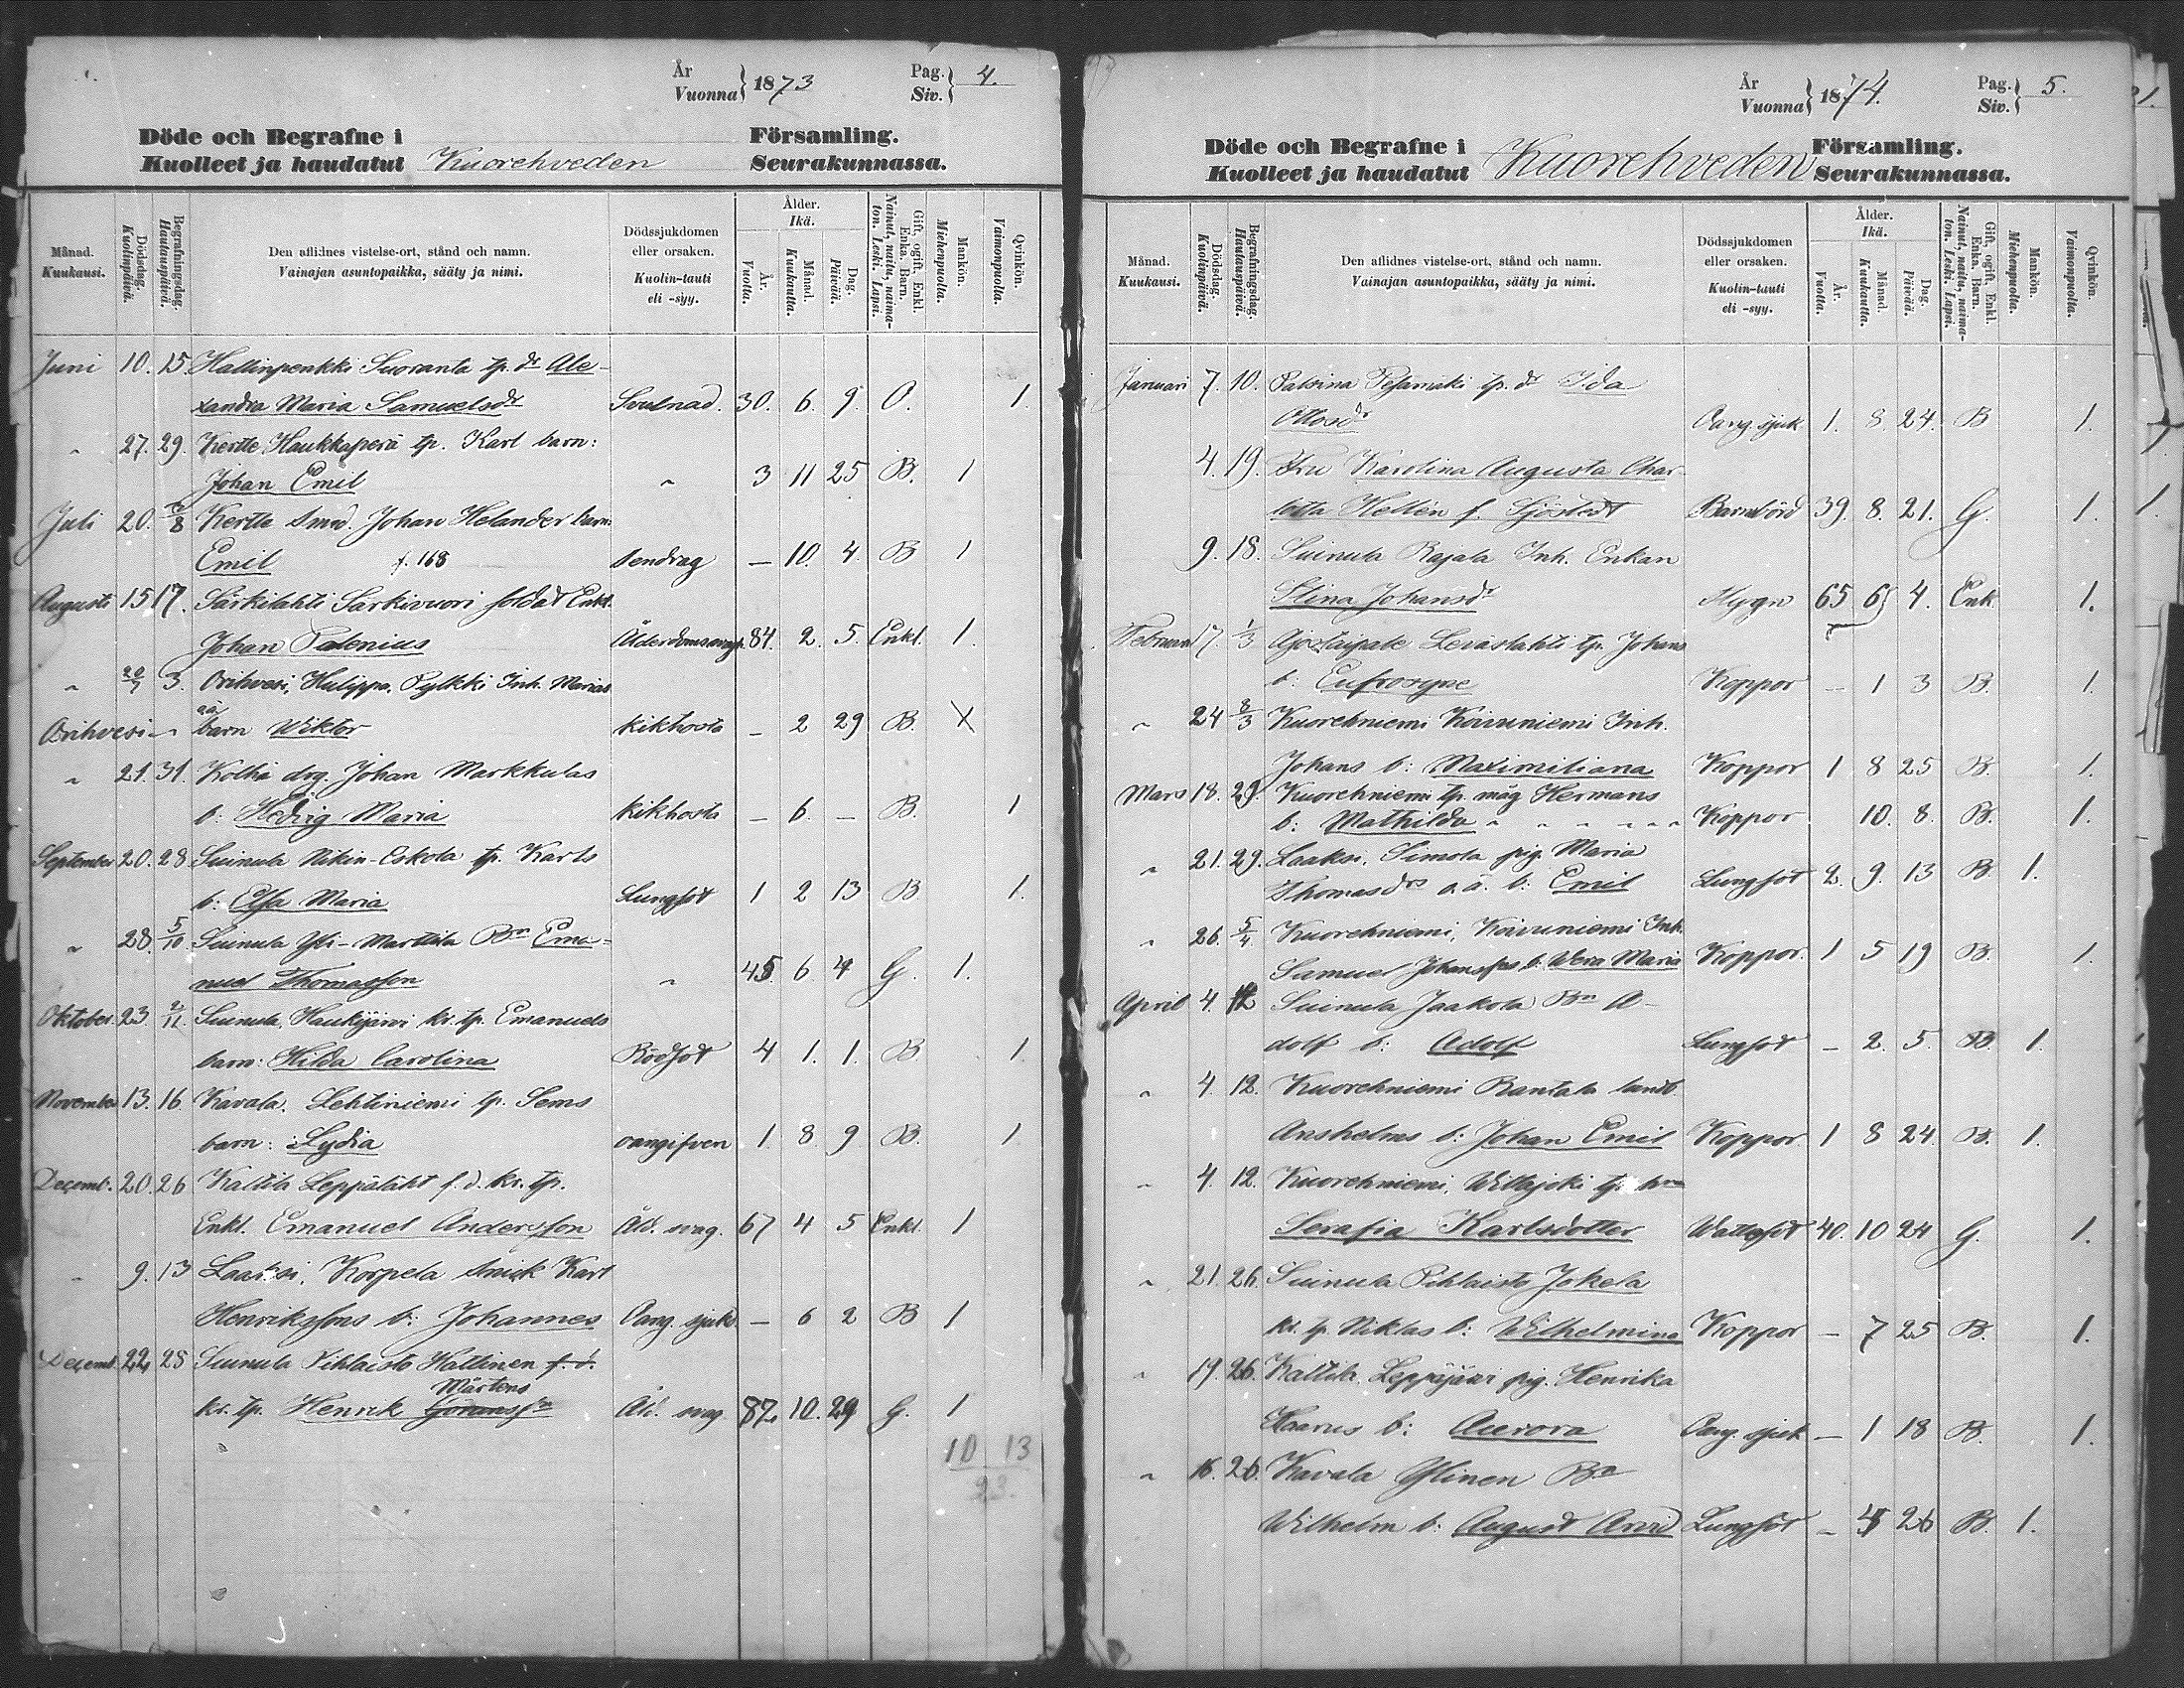 År
Vuonna} 1873
Pag.
Siv.} 4.
Döde och Begrafne i Församling.
Kuolleet ja haudatut Kuorehveden Seurakunnassa.
Månad. Kuukausi.
Dödsdag. Kuolinpäivä.
Begrafningsdag. Hautauspäivä.
Den aflidnes vistelse-ort, stånd och namn. Vainajan asuntopaikka, sääty ja nimi.
Dödssjukdomen eller orsaken. Kuolin-tauti eli -syy.
Ålder. Ikä.
År. Vuotta.
Månad. Kuukautta.
Dag. Päivää.
Gift, ogift, Enkl. Enka. Barn. Nainut, naitu, naimaton. Leski. Lapsi.
Mankön. Miehenpuolta.
Qvinkön. Vaimonpuolta.
Juni 10. 15. Hallinpenkki Suoranta tp. dr Ale-
xandra Maria Samuelsdr 30. 6. 9. O. 1.
" 27. 29. Kertte Haukkaperä tp. Karl barn:
Johan Emil " 3 11 25 B. 1
Juli 20. 3/8 Kertte Smed. Johan Helander barn
Emil f. 168 Sendrag — 10. 4. B 1
Augusti 15 17. Särkilahti Särkivuori soldat Enkl.
Johan Palenius Ålderdomssvagh. 84. 2. 5. Enkl. 1.
" 20/7 3. Orihvesi, Hulippa, Pylkki Inh. Marias
Orihvesi " oä barn Wiktor kikhosta — 2 29 B. X
" 21. 31. Kolhi drg. Johan Markkulas
b: Hedvig Maria kikhosta — 6. — B. 1
September 20. 28 Suinula Nikin-Eskola tp. Karls
b: Elsa Maria Lungsot 1 2 13 B 1.
" 28. 5/10 Suinula Yli-Marttila Bn Ema-
nuel Thomasson " 45 6 4 G. 1.
Oktober. 23 2/11. Suinula, Haukijärvi kr. tp. Emanuels
barn: Hilda Carolina Rödsot 4 1. 1. B 1
November 13. 16. Kavala. Lehtiniemi tp. Sems
barn: Lydia oangifven 1 8 9 B. 1
Decemb. 20. 26 Kaltila Leppälaht f.d. kr. tp.
Enkl. Emanuel Andersson Åld. svag. 67 4 5 Enkl. 1
" 9. 13 Laaksi, Korpela Snick Karl
Henrikssons b: Johannes Oang. sjukd — 6 2 B 1
Decemb. 22. 28 Suinula Pihlaisto Hallinen f.d.
Mårtens
kr. tp. Henrik Göransson Åld. svag 87. 10. 29 G. 1
10 13
23.
År
Vuonna} 1874.
Pag.
Siv.} 5.
Döde och Begrafne i Församling.
Kuolleet ja haudatut Kuorehveden Seurakunnassa.
Månad. Kuukausi.
Dödsdag. Kuolinpäivä.
Begrafningsdag. Hautauspäivä.
Den aflidnes vistelse-ort, stånd och namn. Vainajan asuntopaikka, sääty ja nimi.
Dödssjukdomen eller orsaken. Kuolin-tauti eli -syy.
Ålder. Ikä.
År. Vuotta.
Månad. Kuukautta.
Dag. Päivää.
Gift, ogift, Enkl. Enka. Barn. Nainut, naitu, naimaton. Leski. Lapsi.
Mankön. Miehenpuolta.
Qvinkön. Vaimonpuolta.
Januari 7. 10. Palsina tp. dr Ida
Ottosdr Oang. sjuk. 1. 8. 24. B 1.
4. 19. Fru Karolina Augusta Char-
lotta Hellén f. Sjöstedt Barnbörd 39. 8. 21. G. 1.
9. 18. Suinula Rajala Inh. Enkan
Stina Johansdr Flygn 65 6 4. Enk 1.
Februari 17. 1/3 Leväslahti tp. Johans
b: Eufrosyne Koppor — 1 3 B. 1.
" 24 8/3 Kuorehniemi Koivuniemi Inh.
Johans b: Maximiliana Koppor 1 8 25 B. 1.
Mars 18. 29. Kuorehniemi tp. måg Hermans
b: Mathilda Koppor 10. 8. B. 1.
" 21. 29. Laaksi, Simola pig. Maria
Thomasdrs o.ä. b: Emil Lungsot 2. 9. 13 B. 1.
" 26. 5/4 Kuorehniemi, Koivuniemi Inh.
Samuel Johanssons b. Wera Maria Koppor. 1 5 19 B. 1.
April 4. 12 Suinula Jaakola Bn A-
dolf b: Adolf Lungsot — 2. 5. B. 1.
" 4. 12. Kuorehniemi Rantala landb
Anshelms b: Johan Emil Koppor. 1 8 24. B. 1.
" 4. 12. Kuorehniemi, Willajoki tp. hru
Serafia Karlsdotter Wattusot 40. 10 24 G. 1.
" 21. 26. Suinula Pihlaisto Jokela
kr. tp Niklas b: Wilhelmina Koppor — 7 25 B. 1.
" 19. 26. Kaltila, Leppäjärvi pig. Henrika
b: Aurora Oang. sjuk — 1 18 B. 1.
" 16. 26. Kavala Ylinen Bn
Wilhelm b: August Arvid Lungsot — 4 26 B. 1.